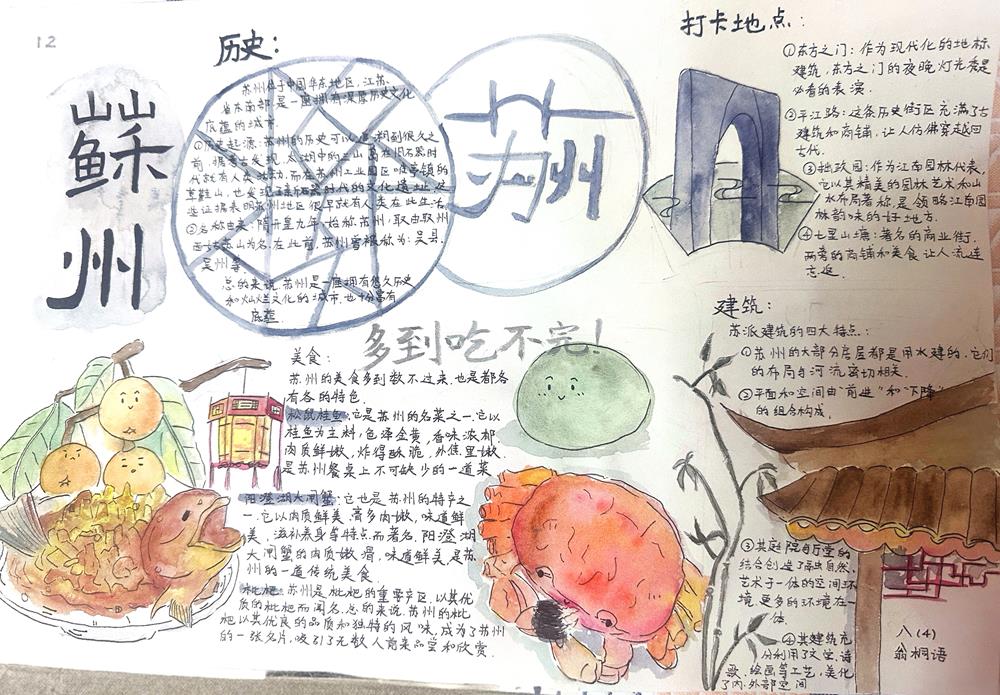 12
蘇州
历史：
苏州位于中国华东地区，江苏
省东南部，是一座拥有深厚历史文化
底蕴的城市.
①历史起源：苏州的历史可以追溯到很久之
前.据考古发现，太湖中的三山岛在旧石器时
代就有人类活动.而在苏州工业园区唯亭镇的
草鞋山，也发现了新石器时代的文化遗址.这
些证据表明苏州地区很早就有人类在此生活.
②名称由来：隋开皇九年，始称苏州，取由
山为名.在此前，苏州曾被称为：吴县、
吴州等.
总的来说，苏州是一座拥有悠久历史
和灿烂文化的城市，也十分富有
底蕴.
苏州
打卡地点：
①东方之门：作为现代化的地标
建筑，东方之门的夜晚灯光秀是
必看的表演.
②平江路：这条历史街区充满了古
建筑和商铺，让人仿佛穿越回
古代.
③拙政园：作为江南园林代表，
它以其精美的园林艺术和山
水布局著称，是领略江南园
林韵味的好地方.
④七里山塘：著名的商业街.
两旁的商铺和美食让人流连
忘返.
多到吃不完！
美食：
苏州的美食多到数不过来，也是都各
有各的特色.
松鼠桂鱼：它是苏州的名菜之一.它以
桂鱼为主料，色泽金黄，香味浓郁.
肉质鲜嫩，炸得酥脆，外焦里嫩.
是苏州餐桌上不可缺少的一道菜
阳澄湖大闸蟹：它也是苏州的特产之
一.它以肉质鲜美、膏多肉嫩，味道鲜
美，滋补养身等特点而著名.阳澄湖
大闸蟹的肉质嫩滑，味道鲜美，是苏
州的一道传统美食
枇杷：苏州是枇杷的重要产区，以其优
质的枇杷而闻名.总的来说苏州的枇
杷以其优良的品质和独特的风味，成为了苏州
的一张名片，吸引了无数人前来品尝和欣赏.
建筑：
苏派建筑的四大特点：
①苏州的大部分房屋都是用水建的，它们
的布局与河流密切相关.
②平面和空间由“前进”和“下降”
的组合构成，
③其庭院与厅堂的
结合创造了融自然、
艺术于一体的空间环
境，更多的环境在一
体.
④其建筑充
分利用了文学、诗
歌、绘画等工艺，美化
了内、外部空间
八(4)
翁桐语